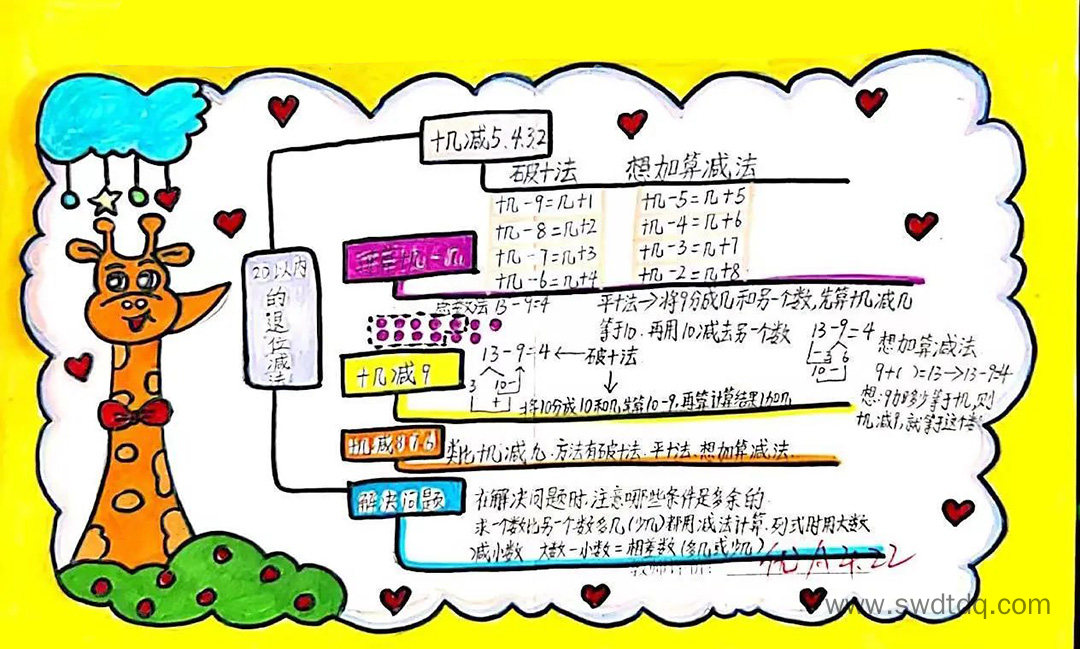 十几减5.4.3.2
破十法 想加算减法
十几-9=几+1 十几-5=几+5
十几-8=几+2 十几-4=几+6
十几-7=几+3 十几-3=几+7
十几-6=几+4 十几-2=几+8
20以内的退位减法
十几-几
13-9=4
平十法→将9分成几和另一个数,先算十几减几
等于10.再用10减去另一个数
十几减9
13-9=4←破十法
3 10
将10分成10和几,先算10-9,再算计算结果加几
13-9=4
3 6
10
想加算减法
9+( )=13→13-9=4
想:9加多少等于十几,则
十几减9,就等于这个数
十几减8 7 6
类比十几减九.方法有破十法.平十法.想加算减法.
解决问题
在解决问题时,注意哪些条件是多余的.
求一个数比另一个数多几(少几)都用减法计算.列式时用大数
减小数 大数-小数=相差数(多几或少几)
优 4.22
www.swdtdq.com